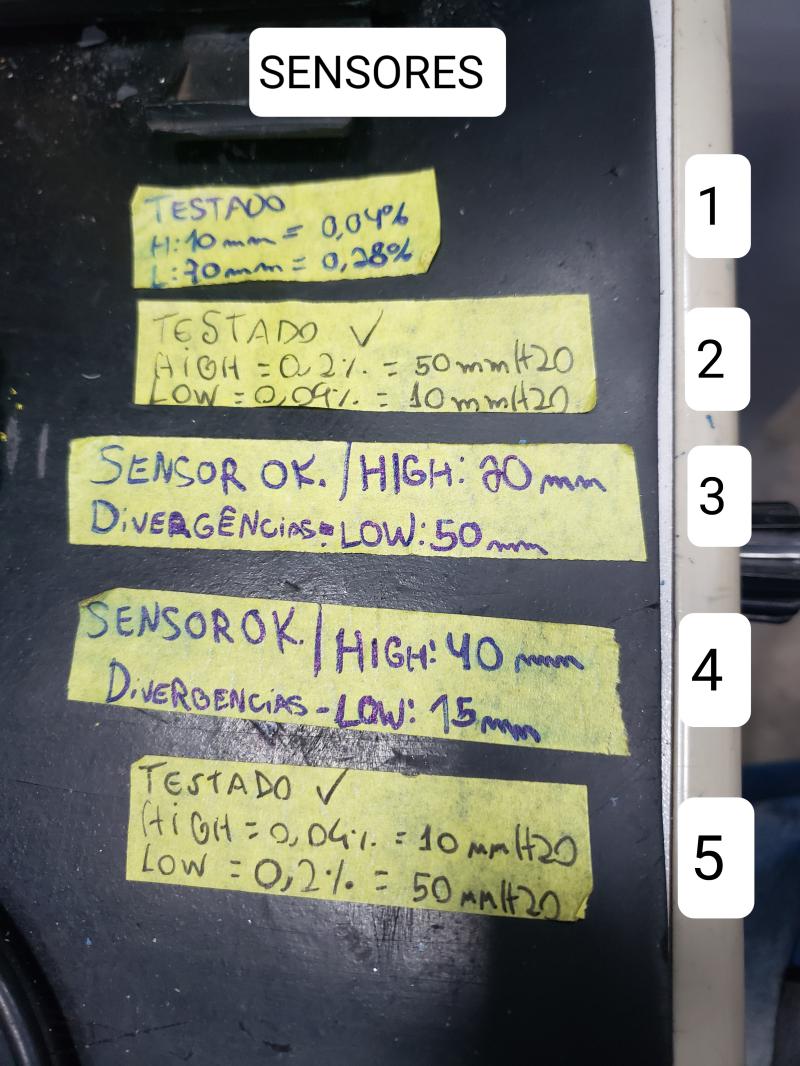 SENSORES
1
TESTADO
H:10mm = 0,04%
L:70mm = 0,28%
2
TESTADO ✓
HIGH = 0,2% = 50mmH20
LOW = 0,04% = 10mmH20
3
SENSOR OK. / HIGH: 20 mm
DIVERGÊNCIAS - LOW: 50mm
4
SENSOR OK. / HIGH: 40 mm
DIVERGENCIAS - LOW: 15mm
5
TESTADO ✓
HIGH = 0,04% = 10mmH20
LOW = 0,2% = 50mmH20